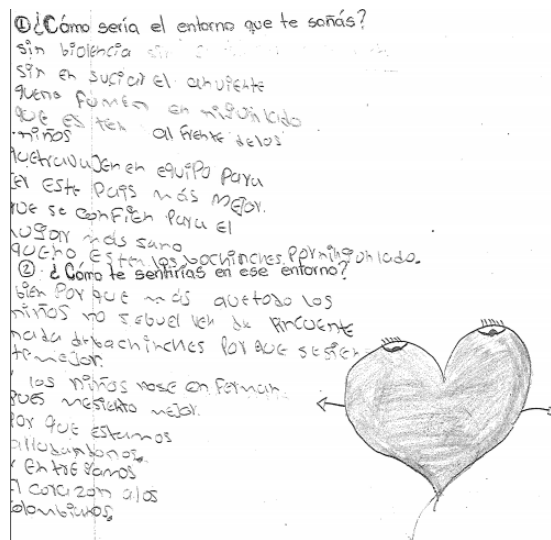 ①¿Cómo sería el entorno que te soñás?
sin biolencia
sin en suciar el anvieente
queno fumen en ningún lido
que es ten al frente delos
niños
quetravajen en equipo para
er este pais más mejor.
que se confien para el
lugar más sano
queno esten los bochinches. Por ningun lado.
② ¿Cómo te sentirías en ese entorno?
bien Por que más quetodo los
niños no se buel ven
nada debachinches Por que sesien
te mejor
los niños nose en ferman
pues mesiento mejor.
Por que estamos
Entregamos
l corazon alos
olombianos